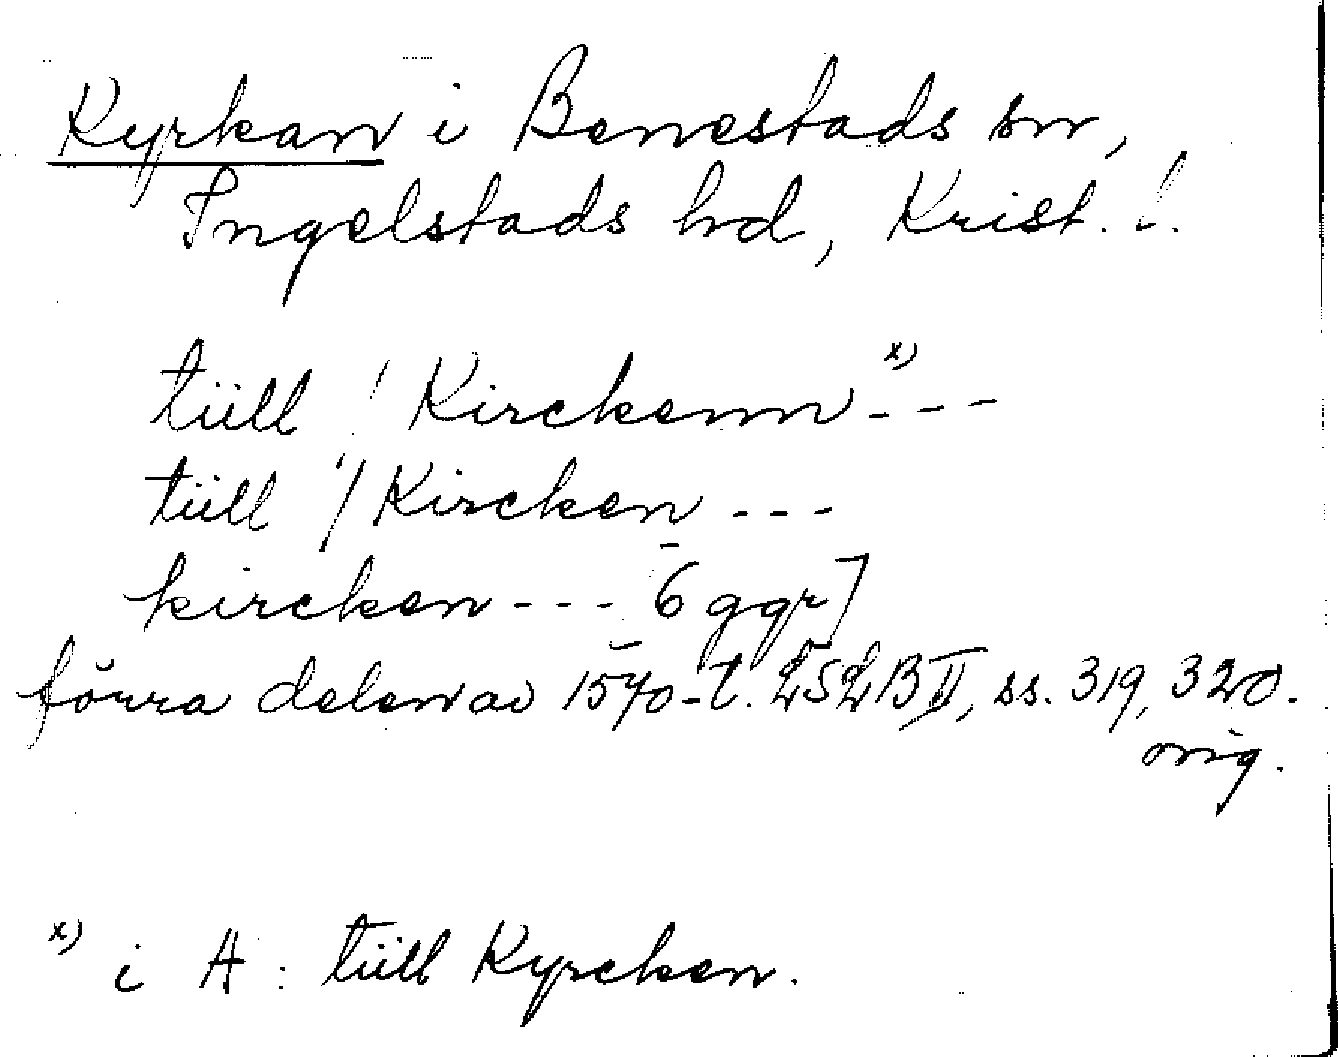 Kyrkan i Benestads sn,
Ingelstads hd, Krist. l.
tiill ! Kirckenn x) - - -
tiill !/ Kircken - - -
kircken - - - 6 ggr]
förra delen av 1540-t. LSLB II, ss. 319, 320.
orig.
x) i A : tiill Kyrcken.